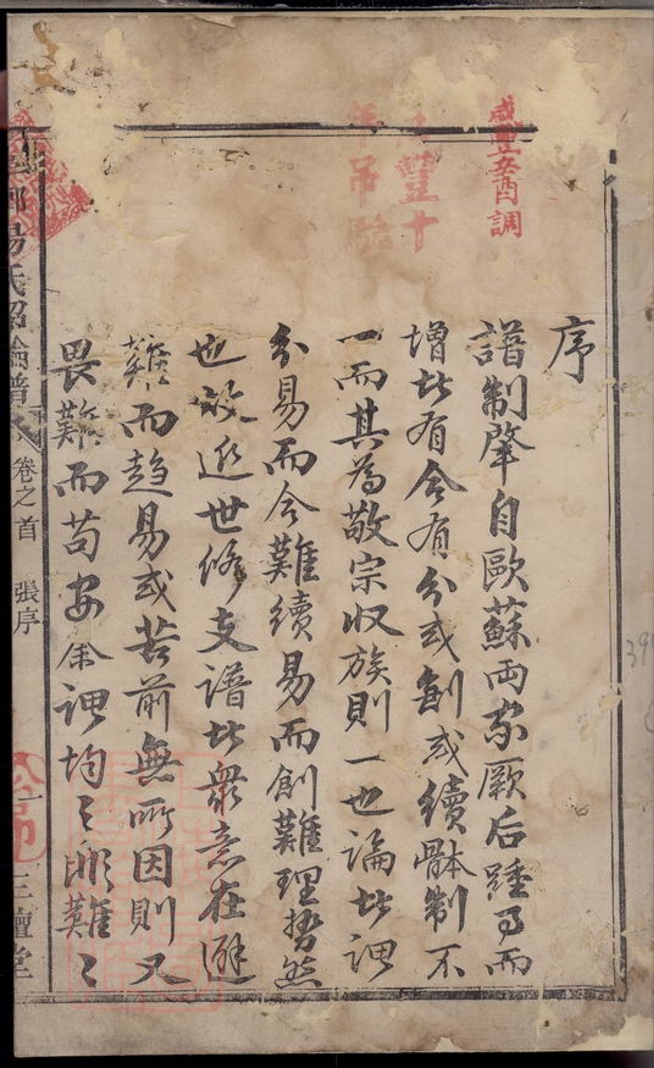 序
譜制肇自歐蘇兩家厥后踵事而
增者有合有分或創或續體制不
一而其為敬宗収族則一也論者謂
分易而合難續易而創難理勢然
也故近世修支譜者眾意在避
難而趨易或苦前無所因則又
畏難而苟安余謂均之非難之
咸豐辛酉調
豐十
年吊驗
楊氏紹倫譜
卷之首
張序
一
三鱣堂